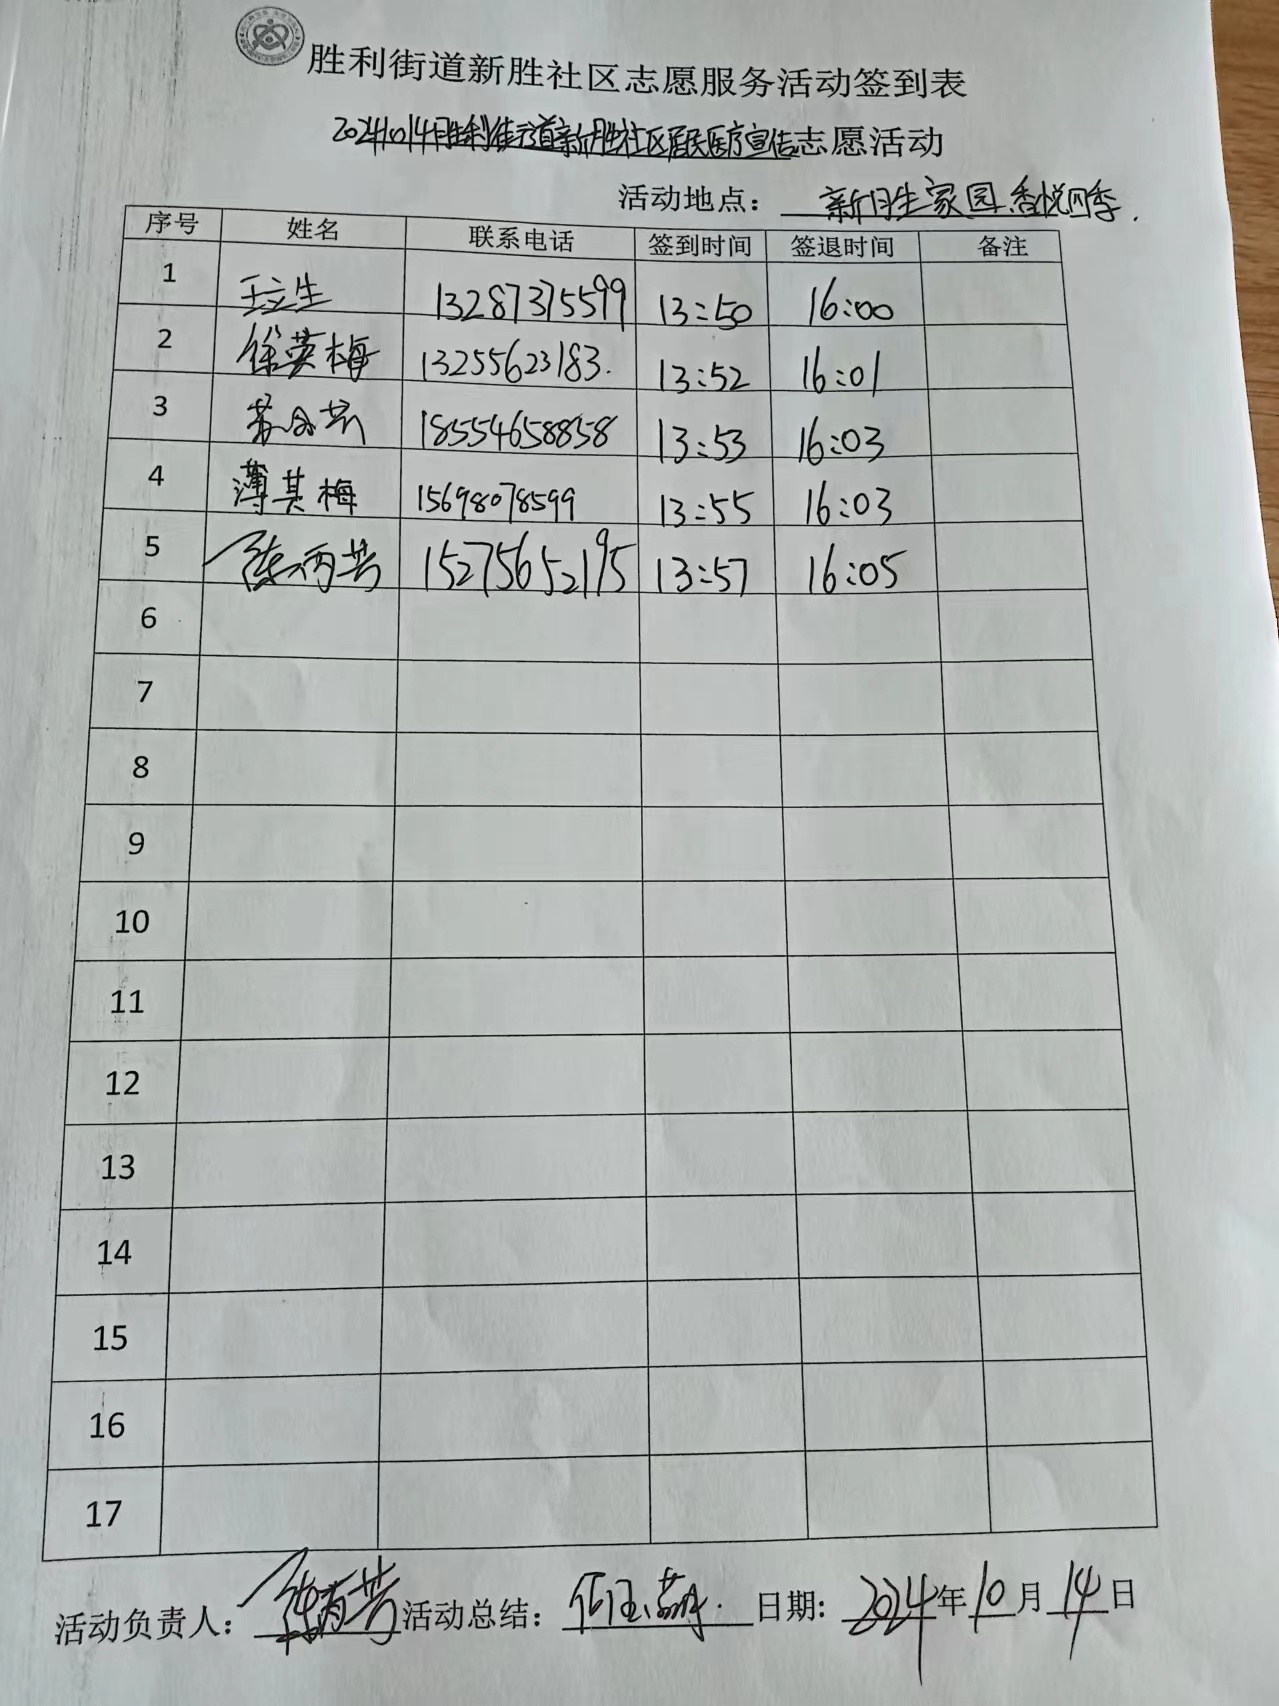 胜利街道新胜社区志愿服务活动签到表
20241014胜利街道新胜社区居民医疗宣传志愿活动
活动地点： 新月生家园 香悦四季.
序号 姓名 联系电话 签到时间 签退时间 备注
1 王立生 13287375599 13:50 16:00
2 徐英梅 13255623183. 13:52 16:01
3 18554658858 13:53 16:03
4 薄其梅 15698078599 13:55 16:03
5 15275652195 13:57 16:05
6
7
8
9
10
11
12
13
14
15
16
17
活动负责人： 活动总结： 日期: 2024年10月14日